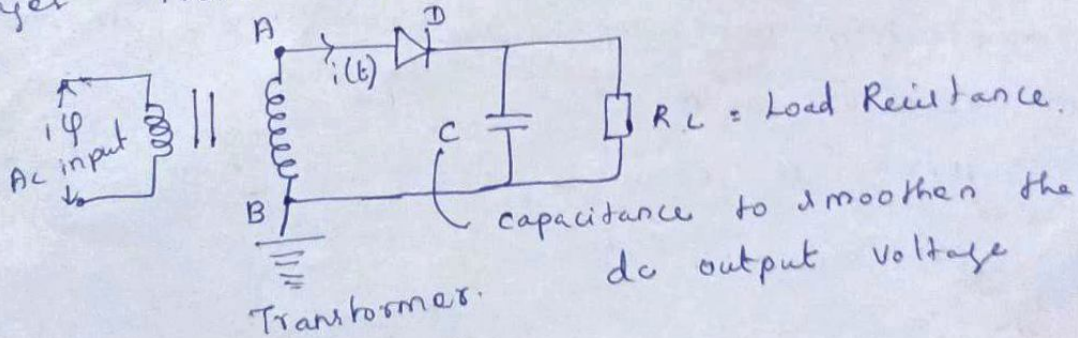 A
D
i(t)
1φ
AC input
C
RL = Load Resistance.
B
capacitance to smoothen the
dc output voltage
Transformer.